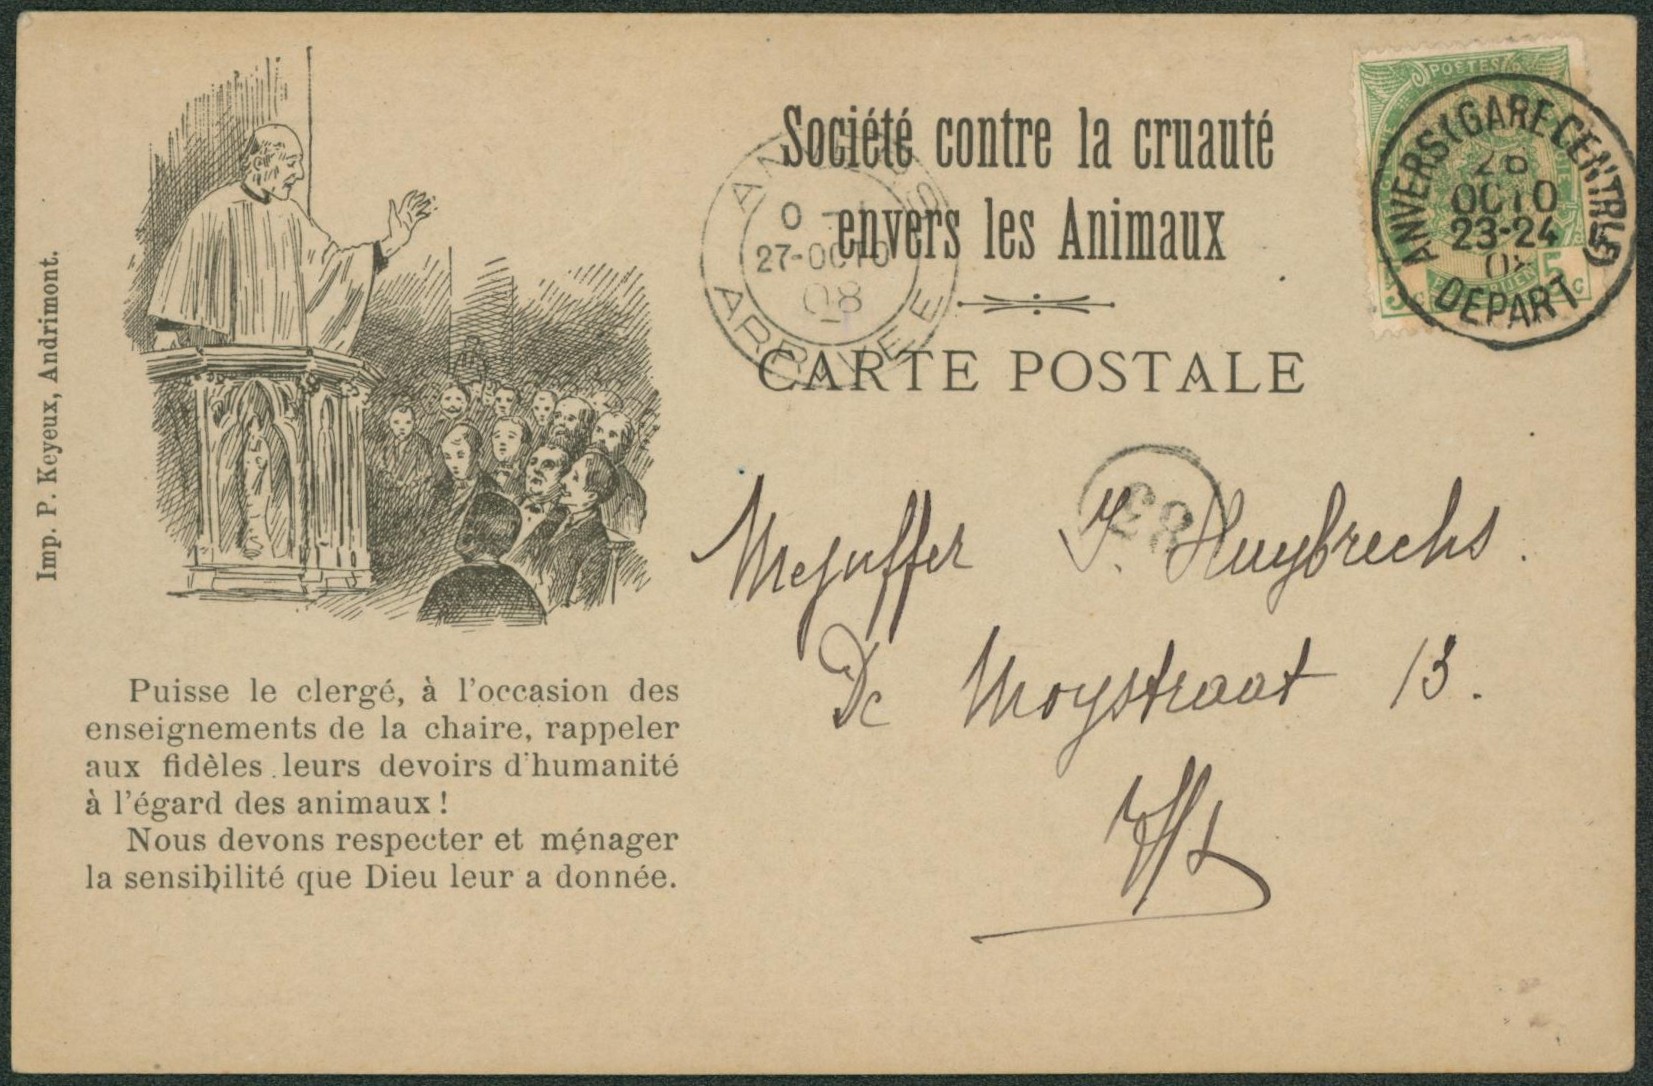 Imp. P. Keyeux, Andrimont.
Société contre la cruauté
envers les Animaux
CARTE POSTALE
POSTES
5 c 5 c
ANVERS (GARE CENTRALE)
26
OCTO
23-24
08
DEPART
27-OCTO
08
ARRIVEE
Mejuffer J. Huybrechs.
De Moystraat 13.
Puisse le clergé, à l'occasion des
enseignements de la chaire, rappeler
aux fidèles leurs devoirs d'humanité
à l'égard des animaux !
Nous devons respecter et ménager
la sensibilité que Dieu leur a donnée.